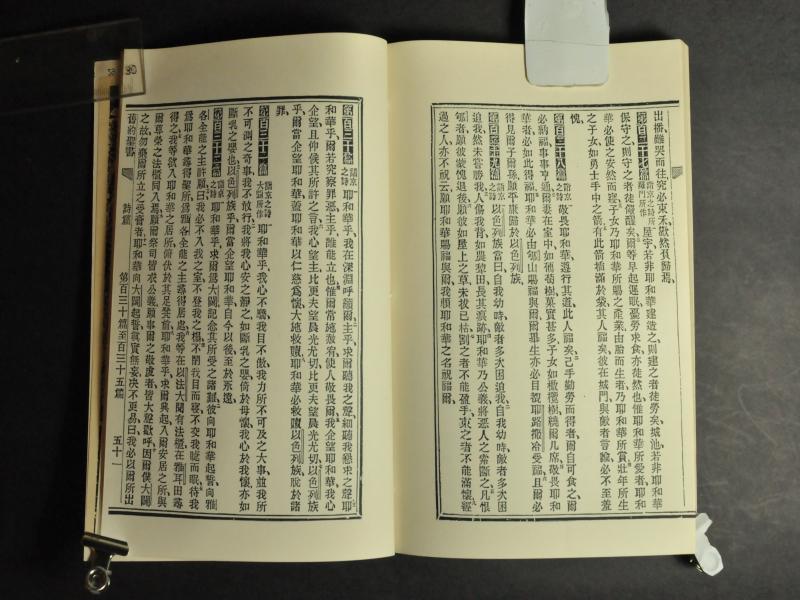 出播雖哭而往究必束禾歡然負歸焉
第百二十七篇 詣京之詩所羅門所作 屋宇若非耶和華建造之則建之者徒勞矣城池若非耶和華
保守之則守之者徒儆醒矣爾等早起遲眠憂勞求食亦徒然也惟耶和華所愛者耶和
華必使之安然而寢子女乃耶和華所賜之產業由胎而生者乃耶和華所賞壯年所生
之子女如勇士手中之箭有此箭插滿於櫜其人福矣彼在城門與敵者言論必不至羞
愧
第百二十八篇 詣京之詩 敬畏耶和華遵行其道此人福矣己手勤勞而得者爾自可食之爾
必納福事事亨通爾妻在室中如葡萄樹菓實甚多子女如橄欖樹繞爾几席敬畏耶和
華者必如此得福耶和華必由郇山賜福與爾爾畢生亦必目覩耶路撒冷受福且爾必
得見爾子爾孫願平康歸於以色列族
第百二十九篇 詣京之詩 以色列族當曰自我幼時敵者多次困迫我自我幼時敵者多次困
迫我然未嘗勝我人傷我背如農犂田長其痕跡耶和華乃公義將惡人之索斷之凡恨
郇者願彼蒙愧退後願彼如屋上之草未拔已枯割之者不能盈手束之者不能滿懷經
過之人亦不祝云願耶和華賜福與爾我賴耶和華之名祝福爾
第百三十篇 詣京之詩 耶和華乎我在深淵呼籲爾主乎求爾聽我之聲細聽我懇求之聲耶
和華乎爾若究察罪愆主乎誰能立也惟爾常施赦宥使人敬畏爾我企望耶和華我心
企望且仰俟其所許之言我心望主比更夫望晨光尤切比更夫望晨光尤切以色列族
乎爾當企望耶和華蓋耶和華以仁慈為懷大施救贖耶和華必救贖以色列族脫於諸
罪
第百三十一篇 詣京之詩大闢所作 耶和華乎我心不驕我目不傲我力所不可及之大事並我所
不可測之奇事我不敢行我將我心安之靜之如斷乳之嬰倚於母懷我心於我懷亦如
斷乳之嬰也以色列族乎爾當企望耶和華自今以後至於永遠
第百三十二篇 詣京之詩 耶和華乎求爾為大闢記念其所受之諸難彼向耶和華起誓向雅
各全能之主許願曰我必不入我之室不登我之榻不閉我目而寢不交我睫而眠待我
為耶和華尋得聖所為雅各全能之主尋得居處我等在以法大聞有法匱在雅耳田尋
得之我等欲入耶和華之居所俯伏於其足凳前耶和華乎求爾興起入爾安居之所與
爾尊榮之法匱同入焉願爾祭司皆衣公義願事爾之敬虔者皆大聲歡呼因爾僕大闢
之故勿棄爾所立之受膏者耶和華向大闢起誓誠實無妄决不更易曰我必以爾所出
舊約聖書
詩篇
第百三十篇至百三十五篇
五十一